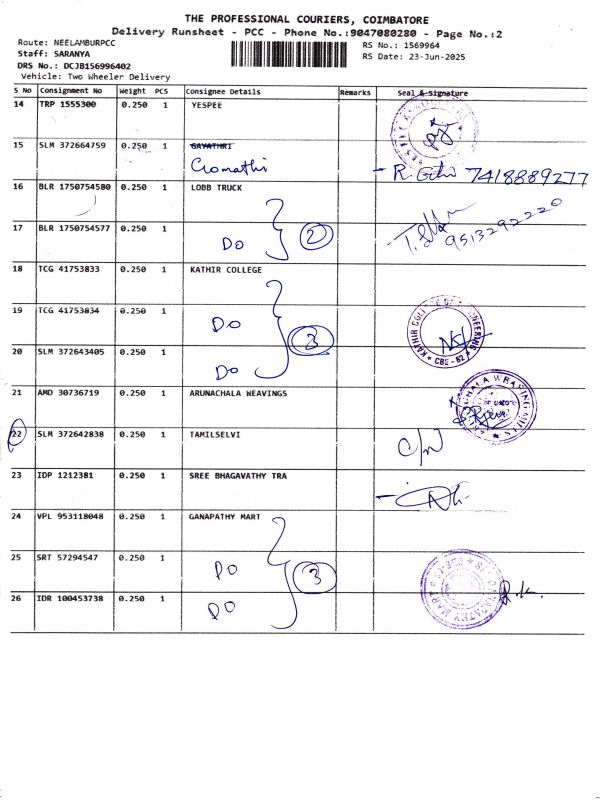 THE PROFESSIONAL COURIERS, COIMBATORE
Delivery Runsheet - PCC - Phone No.:9047080280 - Page No.:2
Route: NEELAMBURPCC
Staff: SARANYA
DRS No.: DCJB156996402
Vehicle: Two Wheeler Delivery
RS No.: 1569964
RS Date: 23-Jun-2025
S No Consignment No Weight PCS Consignee Details Remarks Seal & Signature
14 TRP 1555300 0.250 1 YESPEE
15 SLM 372664759 0.250 1 GAYATHRI
Gomathi
7418889277
16 BLR 1750754580 0.250 1 LOBB TRUCK
9513292220
17 BLR 1750754577 0.250 1
Do 2
18 TCG 41753833 0.250 1 KATHIR COLLEGE
19 TCG 41753834 0.250 1
Do 3
KATHIR COLLEGE OF ENGINEERING
CBE - 62
20 SLM 372643405 0.250 1
Do
21 AMD 30736719 0.250 1 ARUNACHALA WEAVINGS
22 SLM 372642838 0.250 1 TAMILSELVI
C/N
23 IDP 1212381 0.250 1 SREE BHAGAVATHY TRA
24 VPL 953118048 0.250 1 GANAPATHY MART
25 SRT 57294547 0.250 1
DO 3
26 IDR 100453738 0.250 1
DO
R.K.